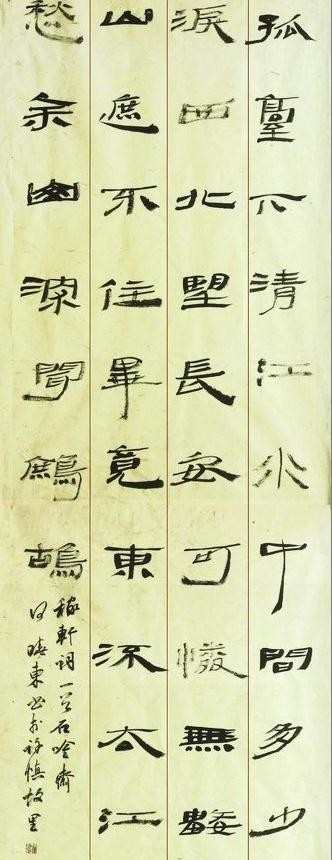 孤臺下清江水中間多少
淚西北望長安可憐無數
山遮不住畢竟東流去江
愁余山深聞鷓鴣
稼軒詞一首石吟齋
何曉東書於許慎故里